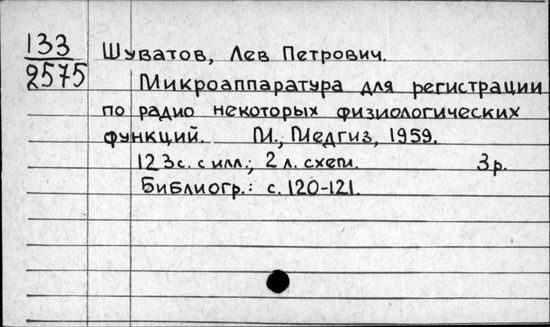 133
2575
Шуватов, Лев Петрович.
Микроаппаратура для регистрации
по радио некоторых физиологических
функций. М., Медгиз, 1959.
123с. с илл.; 2 л. схем. 3р.
Библиогр.: с. 120-121.